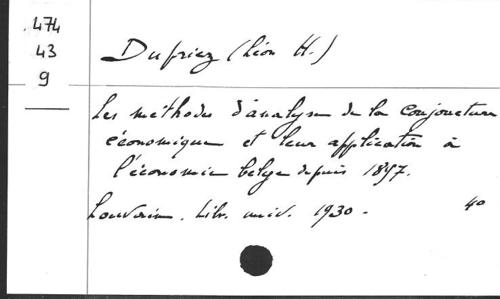 474
43
9
Dufriez (Léon H.)
Les méthodes d'analyse de la conjoncture
économique et leur application à
l'économie belge depuis 1897.
Louvain. Libr. univ. 1930. 4º